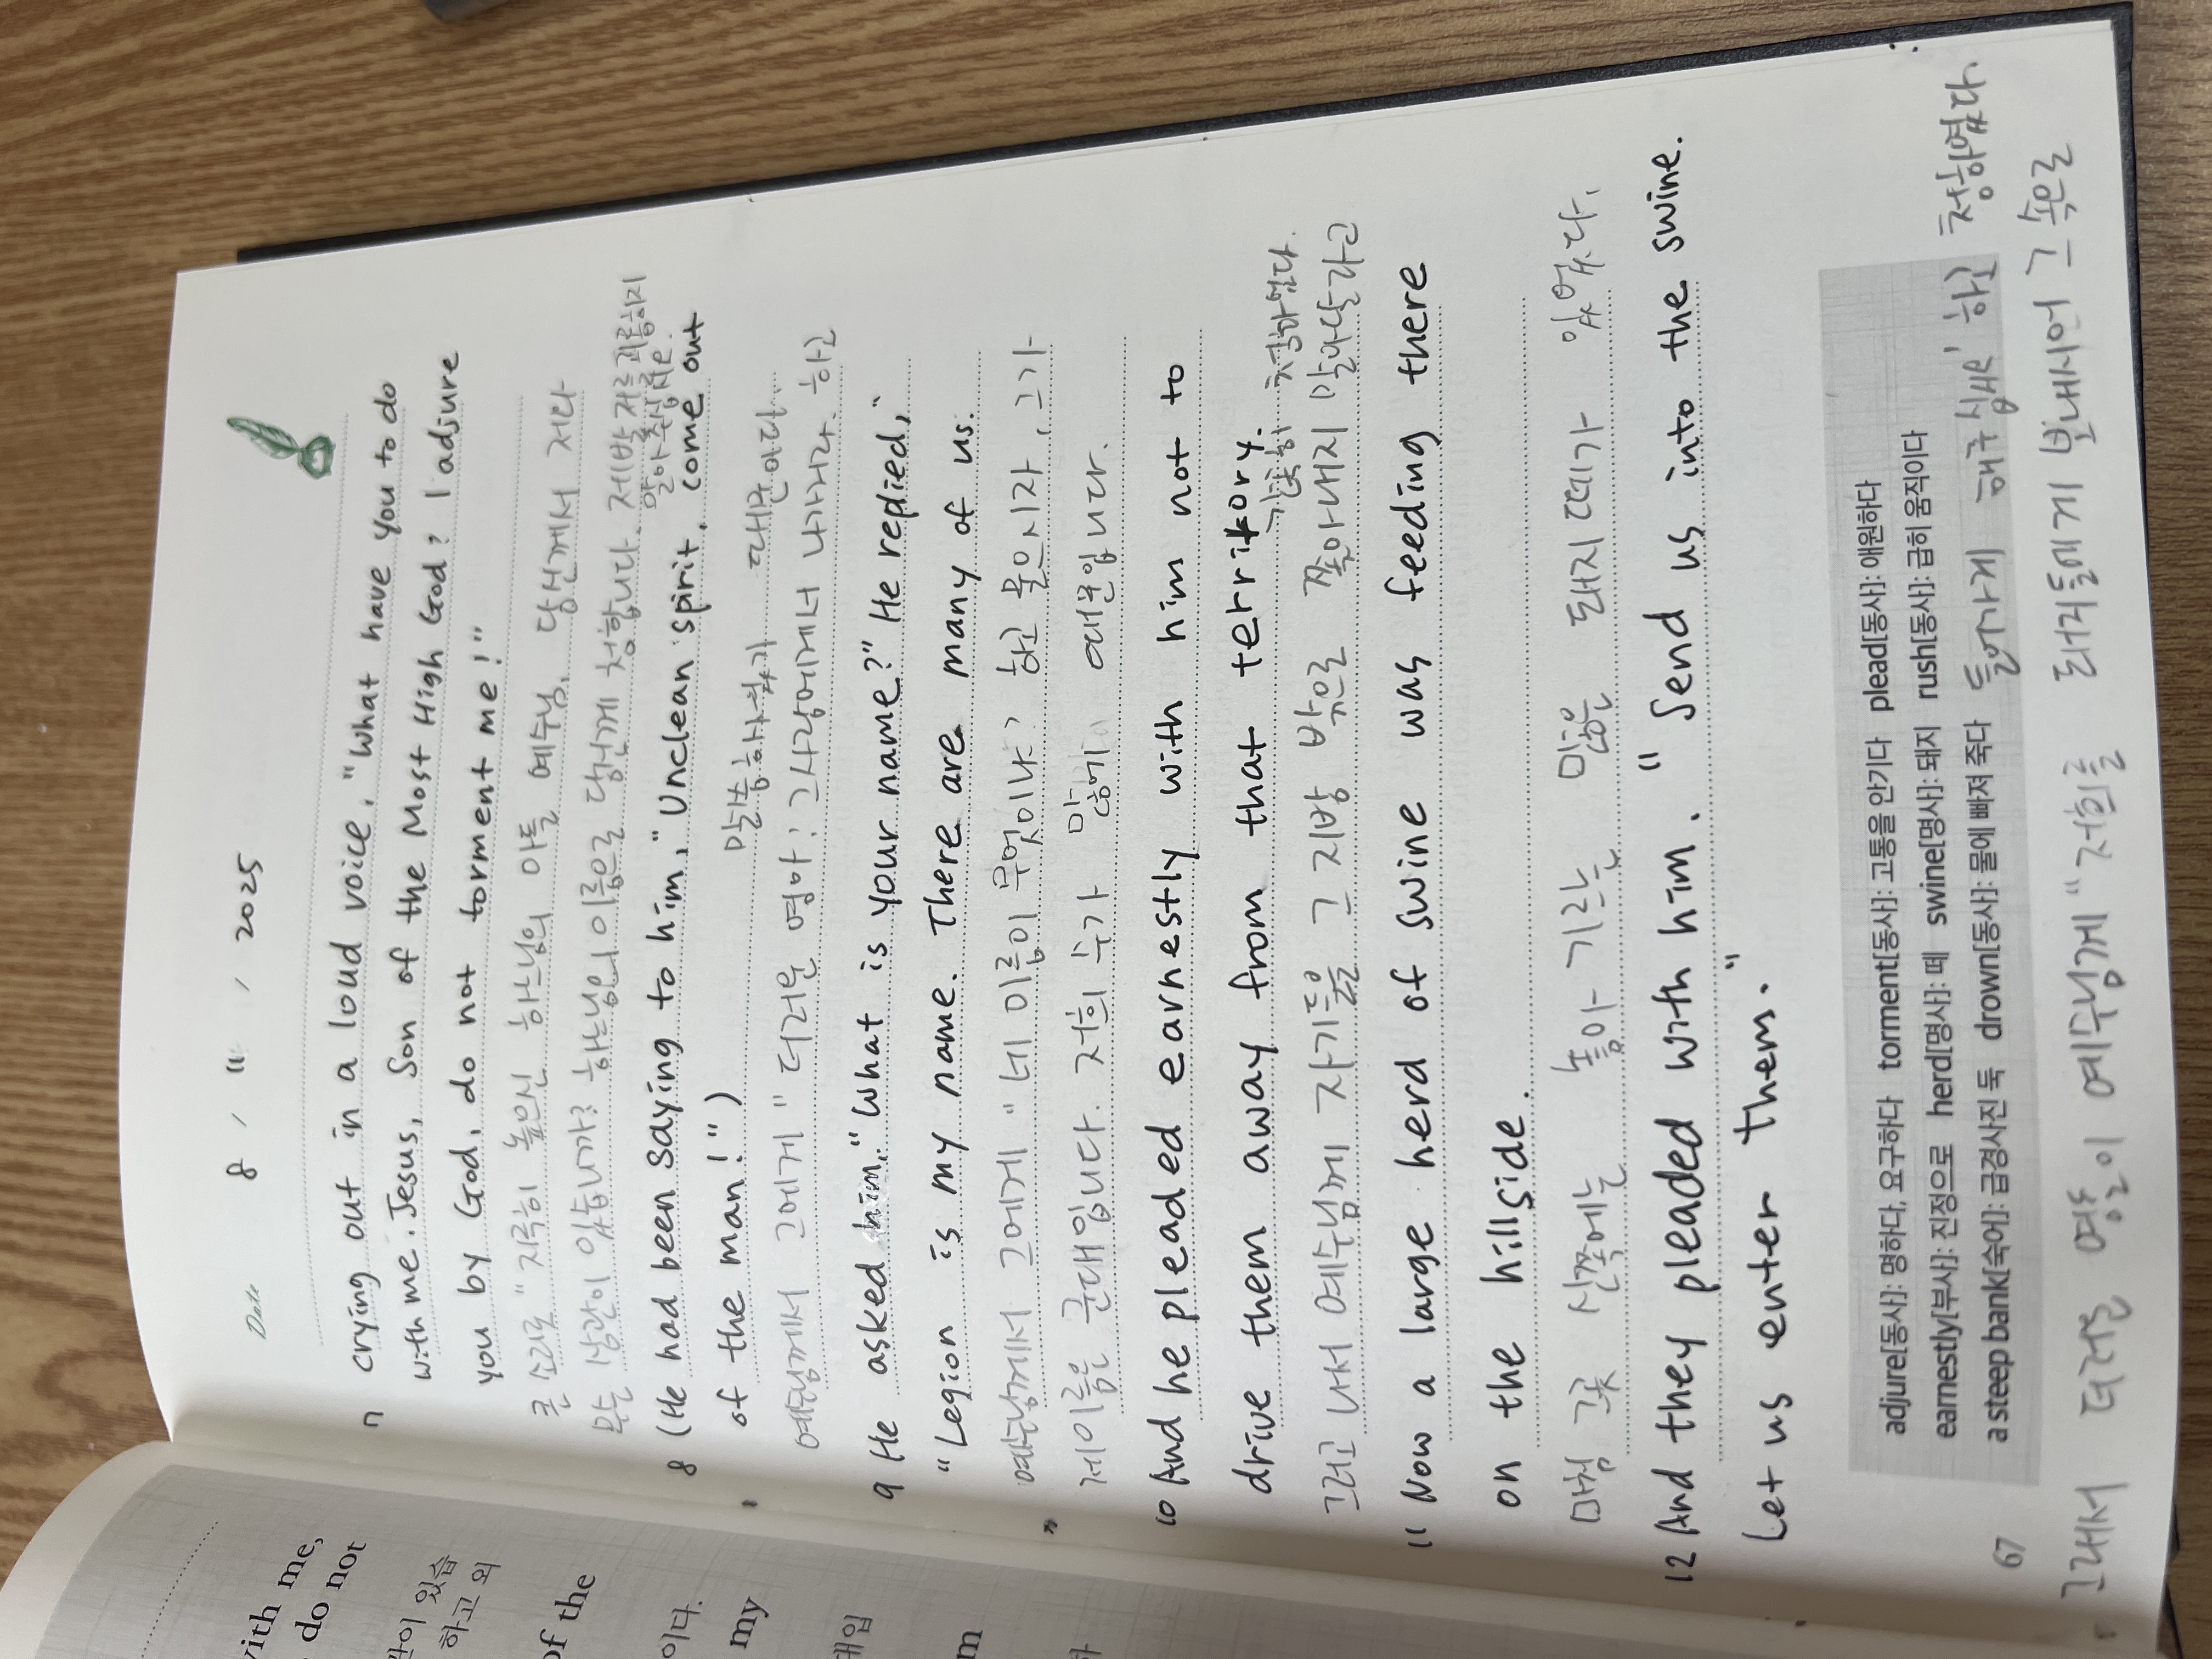 with me,
do not
관이 있습
하고 외
of the
이다.
my
대입
m
Date 8 , 11 , 2025
7 crying out in a loud voice, "What have you to do
with me. Jesus, Son of the Most High God? I adjure
you by God, do not torment me!"
큰 소리로 "지극히 높으신 하느님의 아들 예수님, 당신께서 저와
무슨 상관이 있습니까? 하느님의 이름으로 당신께 청합니다. 제발 저를 괴롭히지
말아 주십시오.
8 (He had been saying to him, "Unclean spirit, come out
of the man!")
말씀하셨기 때문이다.
예수님께서 그에게 "더러운 영아! 그 사람에게서 나가라. 하고
9 He asked him, "What is your name?" He replied,
"Legion is my name. There are many of us.
예수님께서 그에게 "네 이름이 무엇이냐? 하고 물으시자, 그가
제 이름은 군대입니다. 저희 수가 많기 때문입니다.
10 And he pleaded earnestly with him not to
drive them away from that territory.
간곡히 청하였다.
그리고 나서 예수님께 자기들을 그 지방 밖으로 쫓아내지 말아달라고
11 Now a large herd of swine was feeding there
on the hillside.
마침 그곳 산쪽에는 놓아 기르는 많은 돼지 떼가 있었다.
12 And they pleaded with him. "Send us into the swine.
Let us enter them."
adjure[동사]: 명하다, 요구하다 torment[동사]: 고통을 안기다 plead[동사]: 애원하다
earnestly[부사]: 진정으로 herd[명사]: 떼 swine[명사]: 돼지 rush[동사]: 급히 움직이다
a steep bank[숙어]: 급경사진 둑 drown[동사]: 물에 빠져 죽다
들어가게 해주십시오' 하고 청하였다.
67
그래서 더러운 영들이 예수님께 "저희를 돼지들에게 보내시어 그 속으로